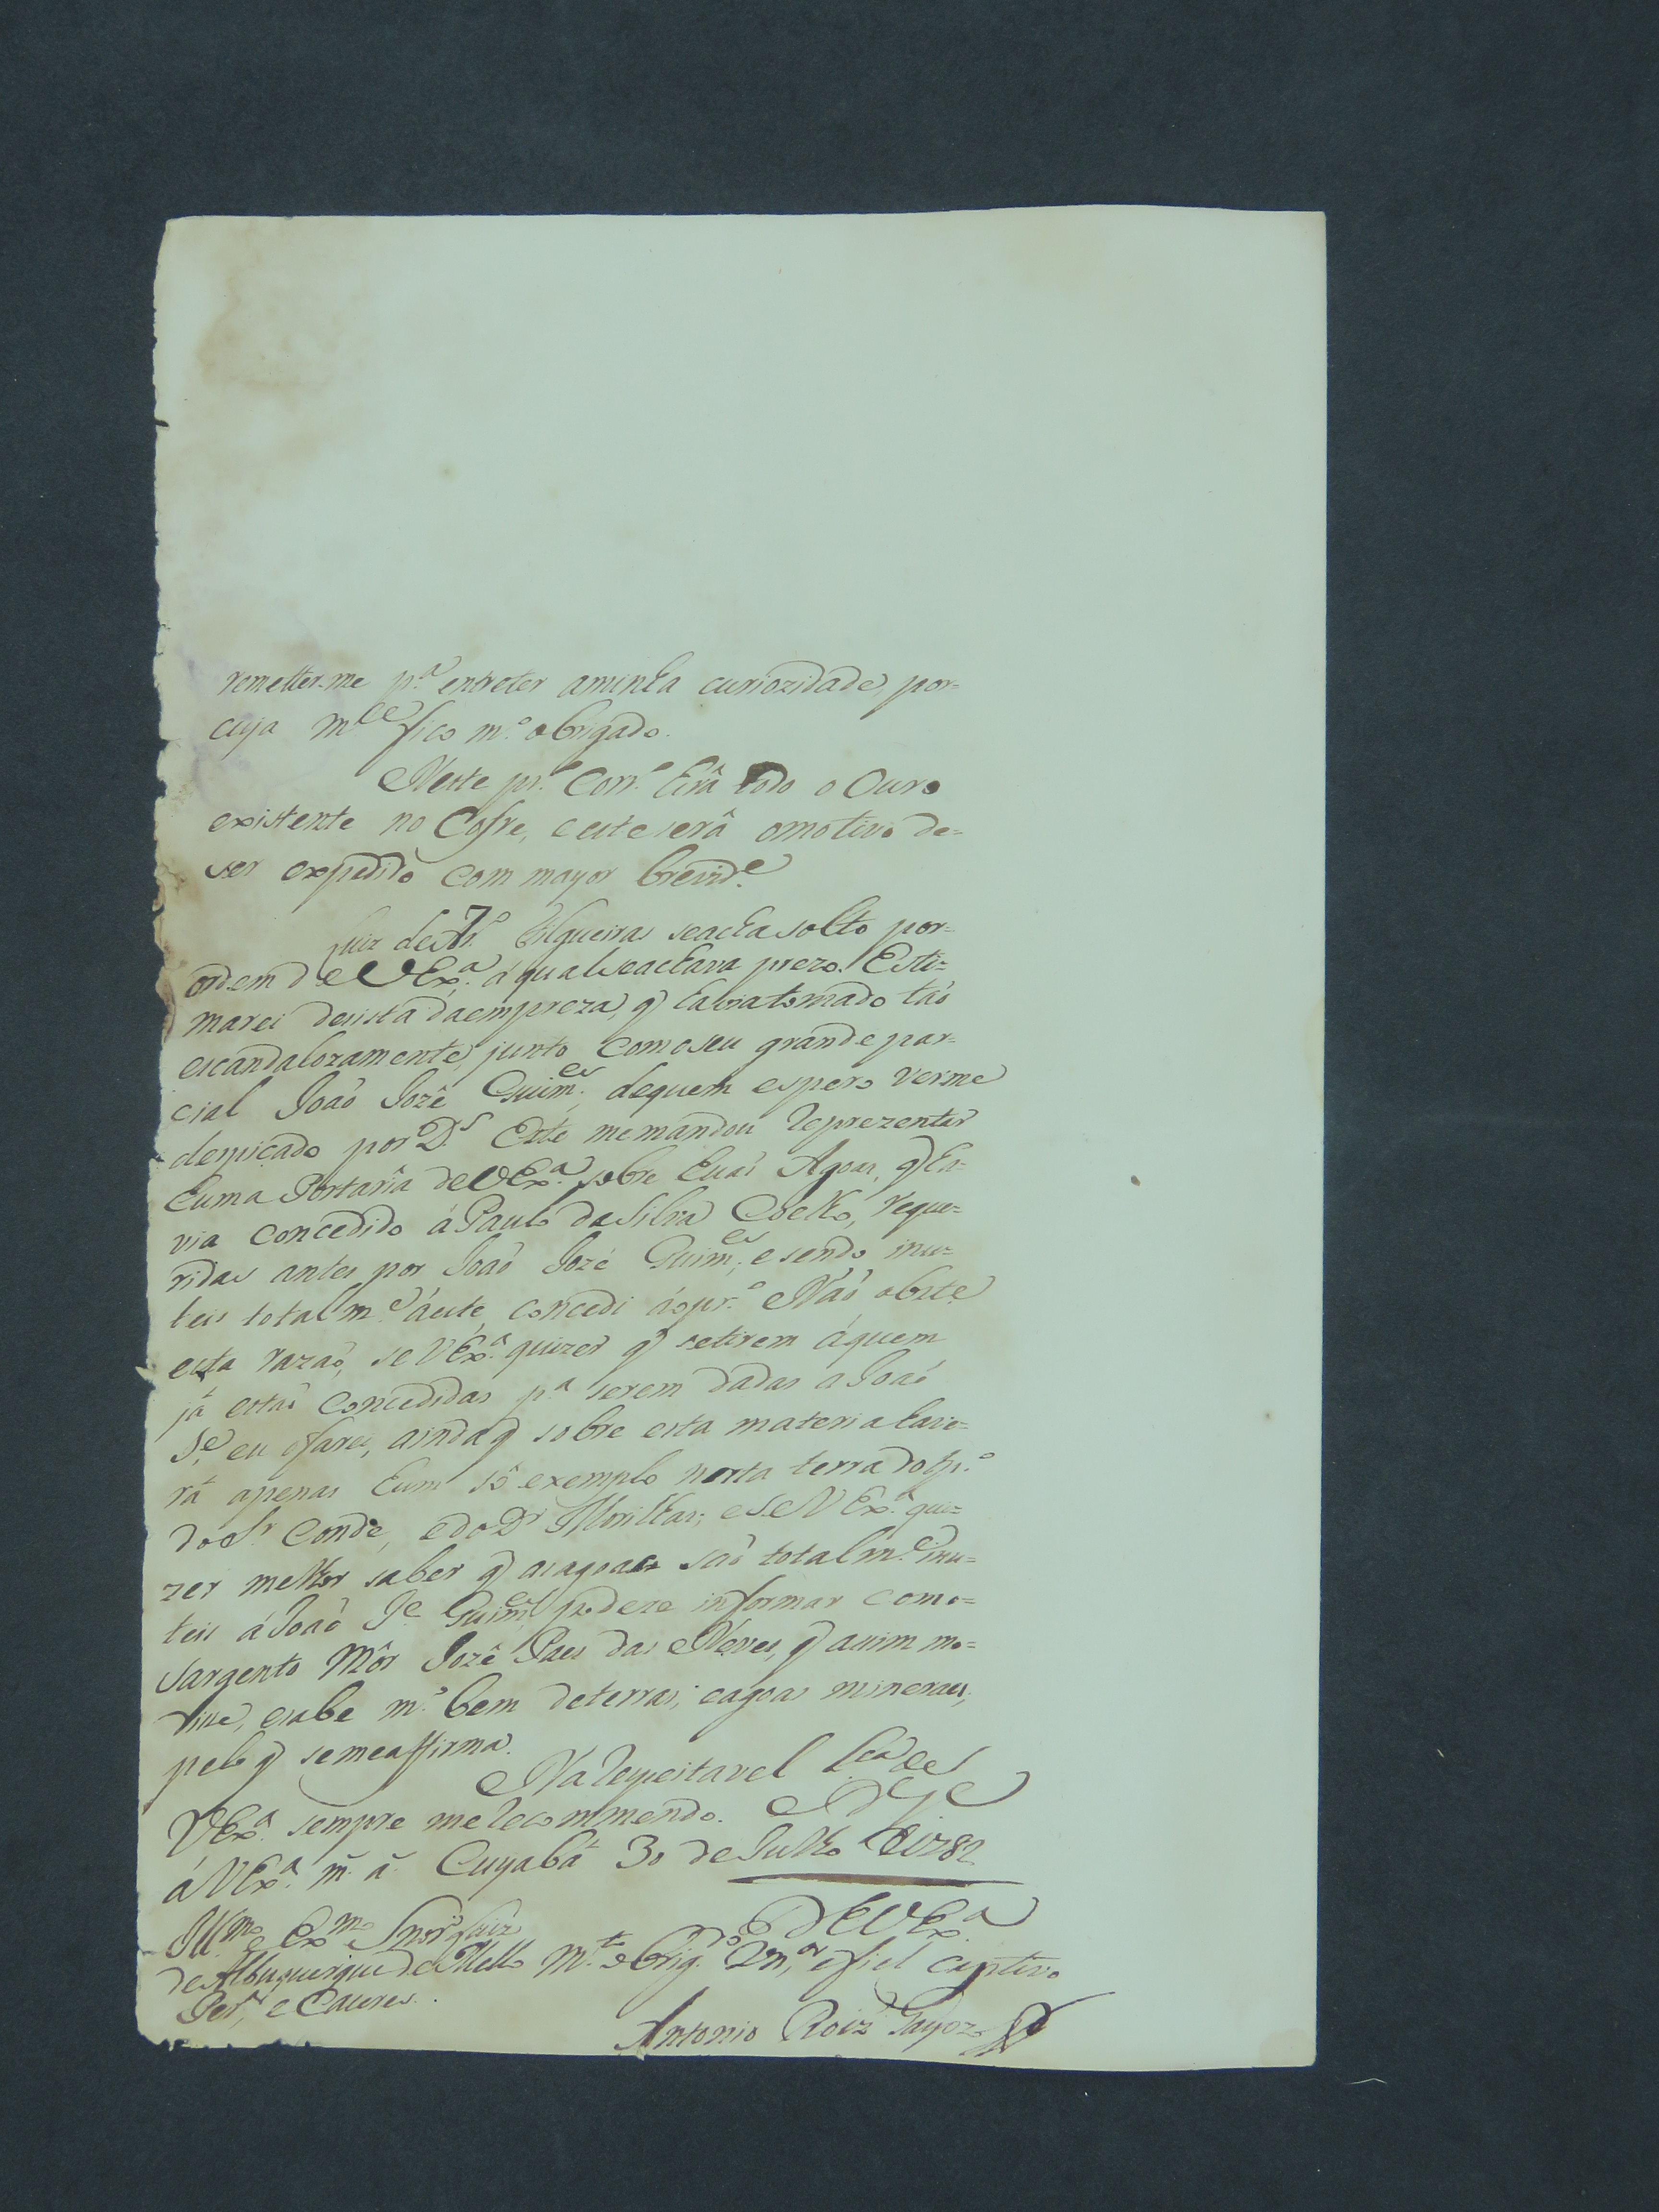 remetter-me p.ª entreter aminha curiozidade, por=
cuja m.ce fico m.º obrigado.
Neste pr.º Corr.º hirâ todo o Ouro
existente no Cofre, e este serâ omotivo de=
ser expedido com mayor brevid.e
Luiz de Ar.º Filgueiras seacha solto por=
ordem de VEx.ª á qual seachava prezo. Esti=
marei desista daempreza, q̃ haviatomado taõ
escandalozamente, junto comoseu grande par=
cial Joaõ Jozê Guim.es, dequem espero verme
despicado por D.s Este memandou reprezentar
huma Portaria de VEx.ª sobre huãs Agoas, q̃ ha=
via concedido á Paulo da Silva Coelho, reque=
ridas antes por Joaõ Jozé Guim.es, e sendo inu=
teis totalm.e áeste, concedi áopr.º Naõ obst.e
esta razaõ, se VEx.ª quizer q̃ setirem áquem
já estaõ concedidas p.ª serem dadas a Joaõ
J.e, eu ofarei, aindaq̃ sobre esta materia have=
rá apenas hum sô exemplo nesta terra dotp.º
do S.r Conde, e do D.r Morilhas; e Se VEx.ª qui=
zer melhor saber q̃ asagoas saõ totalm.e inu=
teis áJoaõ J.e Guim.es podese informar como=
Sargento Môr Jozê Paes das Neves, q̃ assim mo=
disse, esabe m.º bem deterras, eagoas mineraes,
pelo q̃ semeaffirma.
Na respeitavel prez.ca de
VEx.ª sempre merecommendo. D.s g.e
á VEx.ª m.s a.s Cuyabá 30 de Julho de 1782
De VEx.ª
Ill.mo e Ex.mo Snor' Luiz
de Albuquerque de Mello M.to obrig.do Vn.or, efiel captivo
Per.ª, e Caceres.
Antonio Roiz' Gayozo